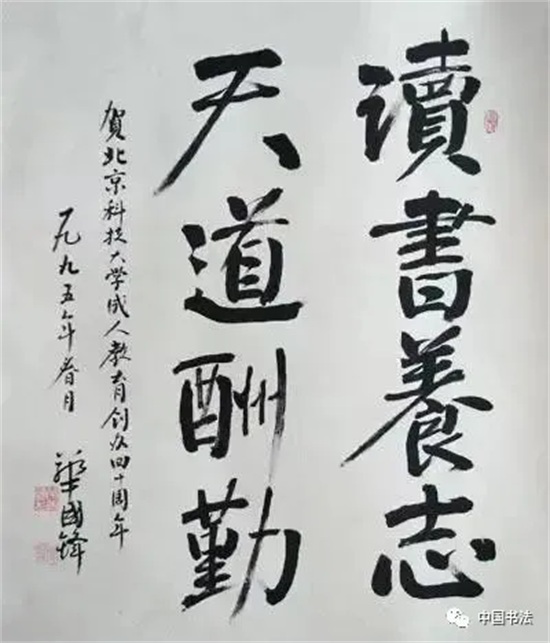 讀書養志
天道酬勤
賀北京科技大学成人教育创办四十周年
一九九五年春月
華國鋒
中国书法